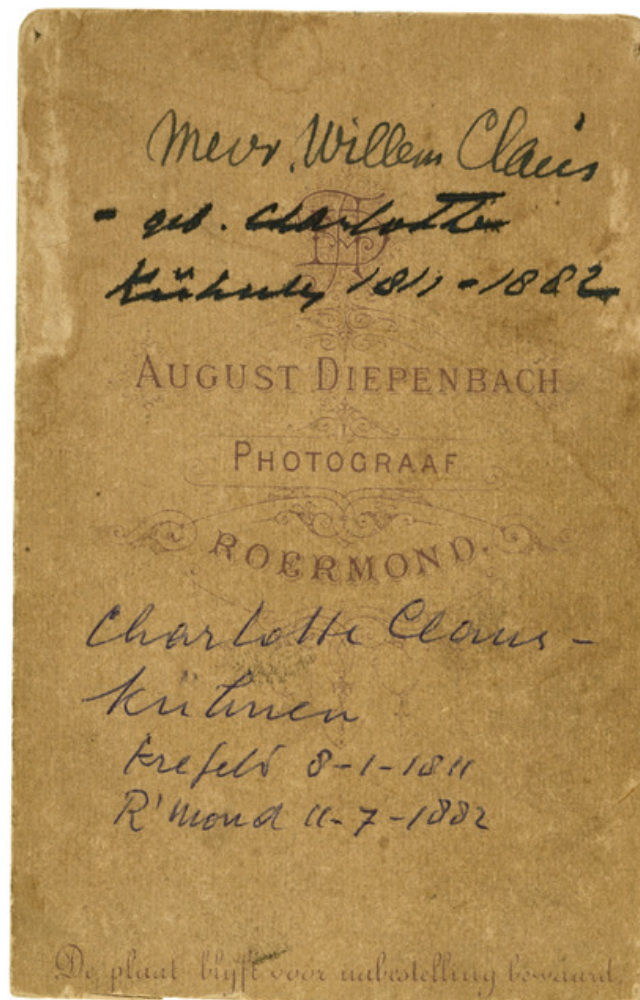 Mevr. Willem Claus
- geb. Charlotte
Kühnen 1811-1882
AUGUST DIEPENBACH
PHOTOGRAAF
ROERMOND.
Charlotte Claus-
Kühnen
Krefeld 8-1-1811
R'mond 11-7-1882
De plaat blijft voor nabestelling bewaard.